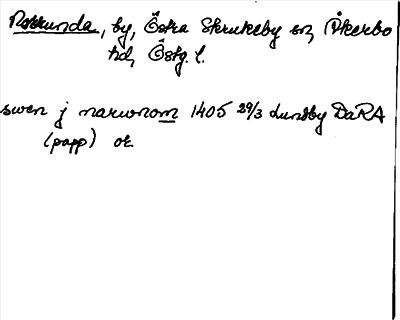 Norrunda, by, Östra Skrukeby sn, Åkerbo
hd, Östg. l.
swen j narwnom 1405 29/3 Lundby DaRA
(papp) or.